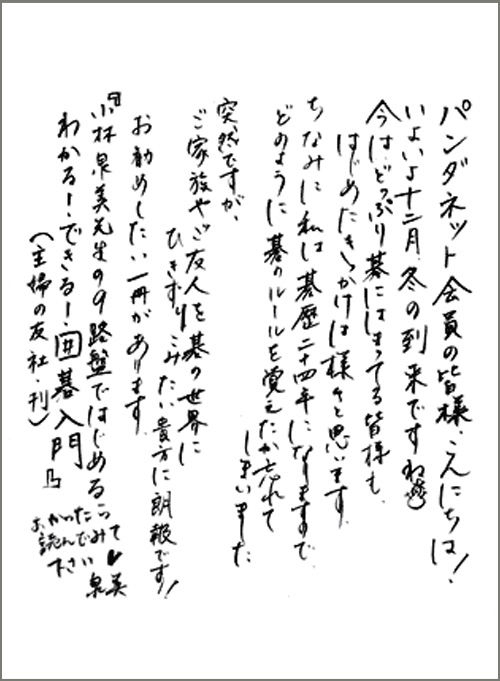 パンダネット会員の皆様、こんにちは!
いよいよ十二月、冬の到来ですね
今は、どっぷり碁にはまってる皆様も、
はじめたきっかけは様々と思います。
ちなみに私は碁歴二十四年になりますので、
どのように碁のルールを覚えたか忘れて
しまいました
突然ですが、
ご家族やご友人を碁の世界に
ひきずりこみたい貴方に朗報です!
お勧めしたい一冊があります。
『小林泉美先生の9路盤ではじめる
わかる!できる!囲碁入門』
(主婦の友社・刊)
よかったら
読んでみて
下さい♥
泉美